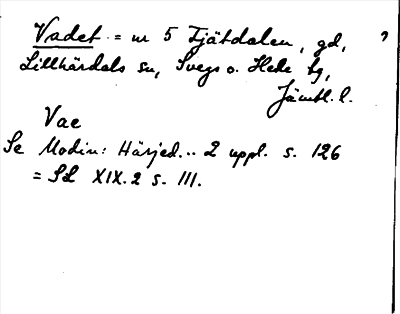 Vadet = nr 5 Fjätdalen, gd, ?
Lillhärdals sn, Svegs o. Hede tg,
Jämtl. l.
Vae
Se Modin: Härjed... 2 uppl. s. 126
= SL XIX.2 s. 111.